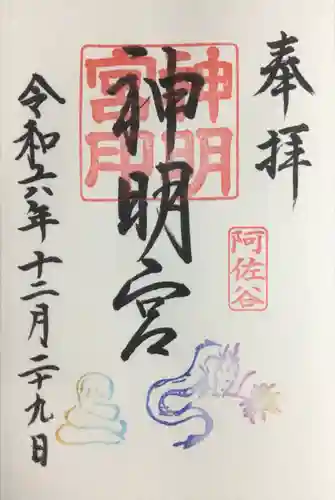 奉拝
阿佐谷
神明宮
神明
宮印
令和六年十二月二十九日